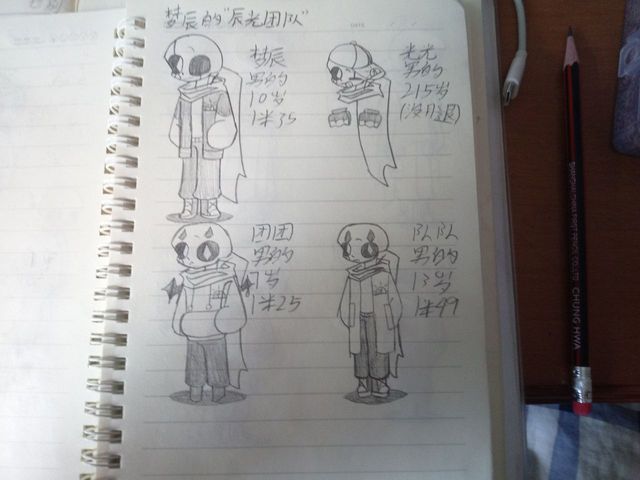 梦辰的"辰光团队"
梦辰
男的
10岁
1米35
光光
男的
215岁
(没月退)
团团
男的
7岁
1米25
队队
男的
13岁
1米49
DATE
CHUNG HWA